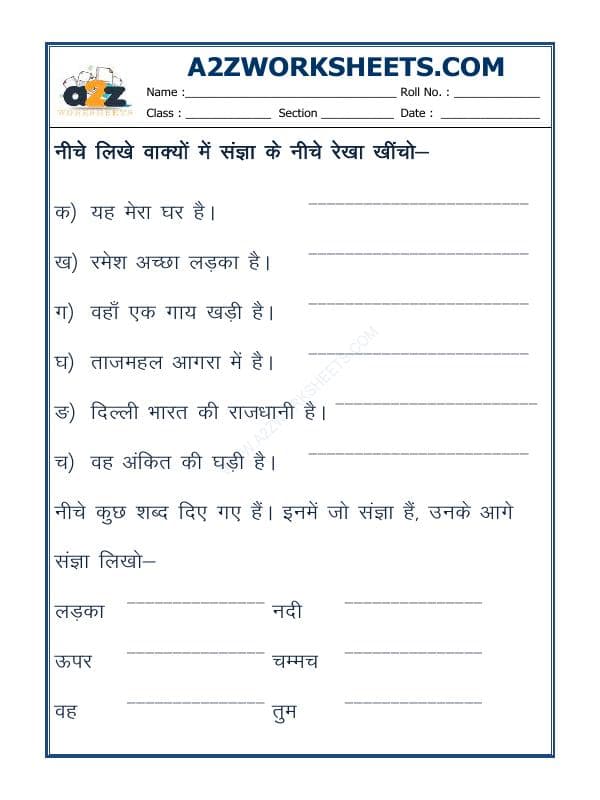 A2ZWORKSHEETS.COM
a2z
WORKSHEETS
Name :____________________ Roll No. : __________
Class : __________ Section _________ Date : __________
नीचे लिखे वाक्यों में संज्ञा के नीचे रेखा खींचो–
क) यह मेरा घर है।
ख) रमेश अच्छा लड़का है।
ग) वहाँ एक गाय खड़ी है।
घ) ताजमहल आगरा में है।
ङ) दिल्ली भारत की राजधानी है।
च) वह अंकित की घड़ी है।
नीचे कुछ शब्द दिए गए हैं। इनमें जो संज्ञा हैं, उनके आगे
संज्ञा लिखो–
लड़का ____________ नदी ____________
ऊपर ____________ चम्मच ____________
वह ____________ तुम ____________